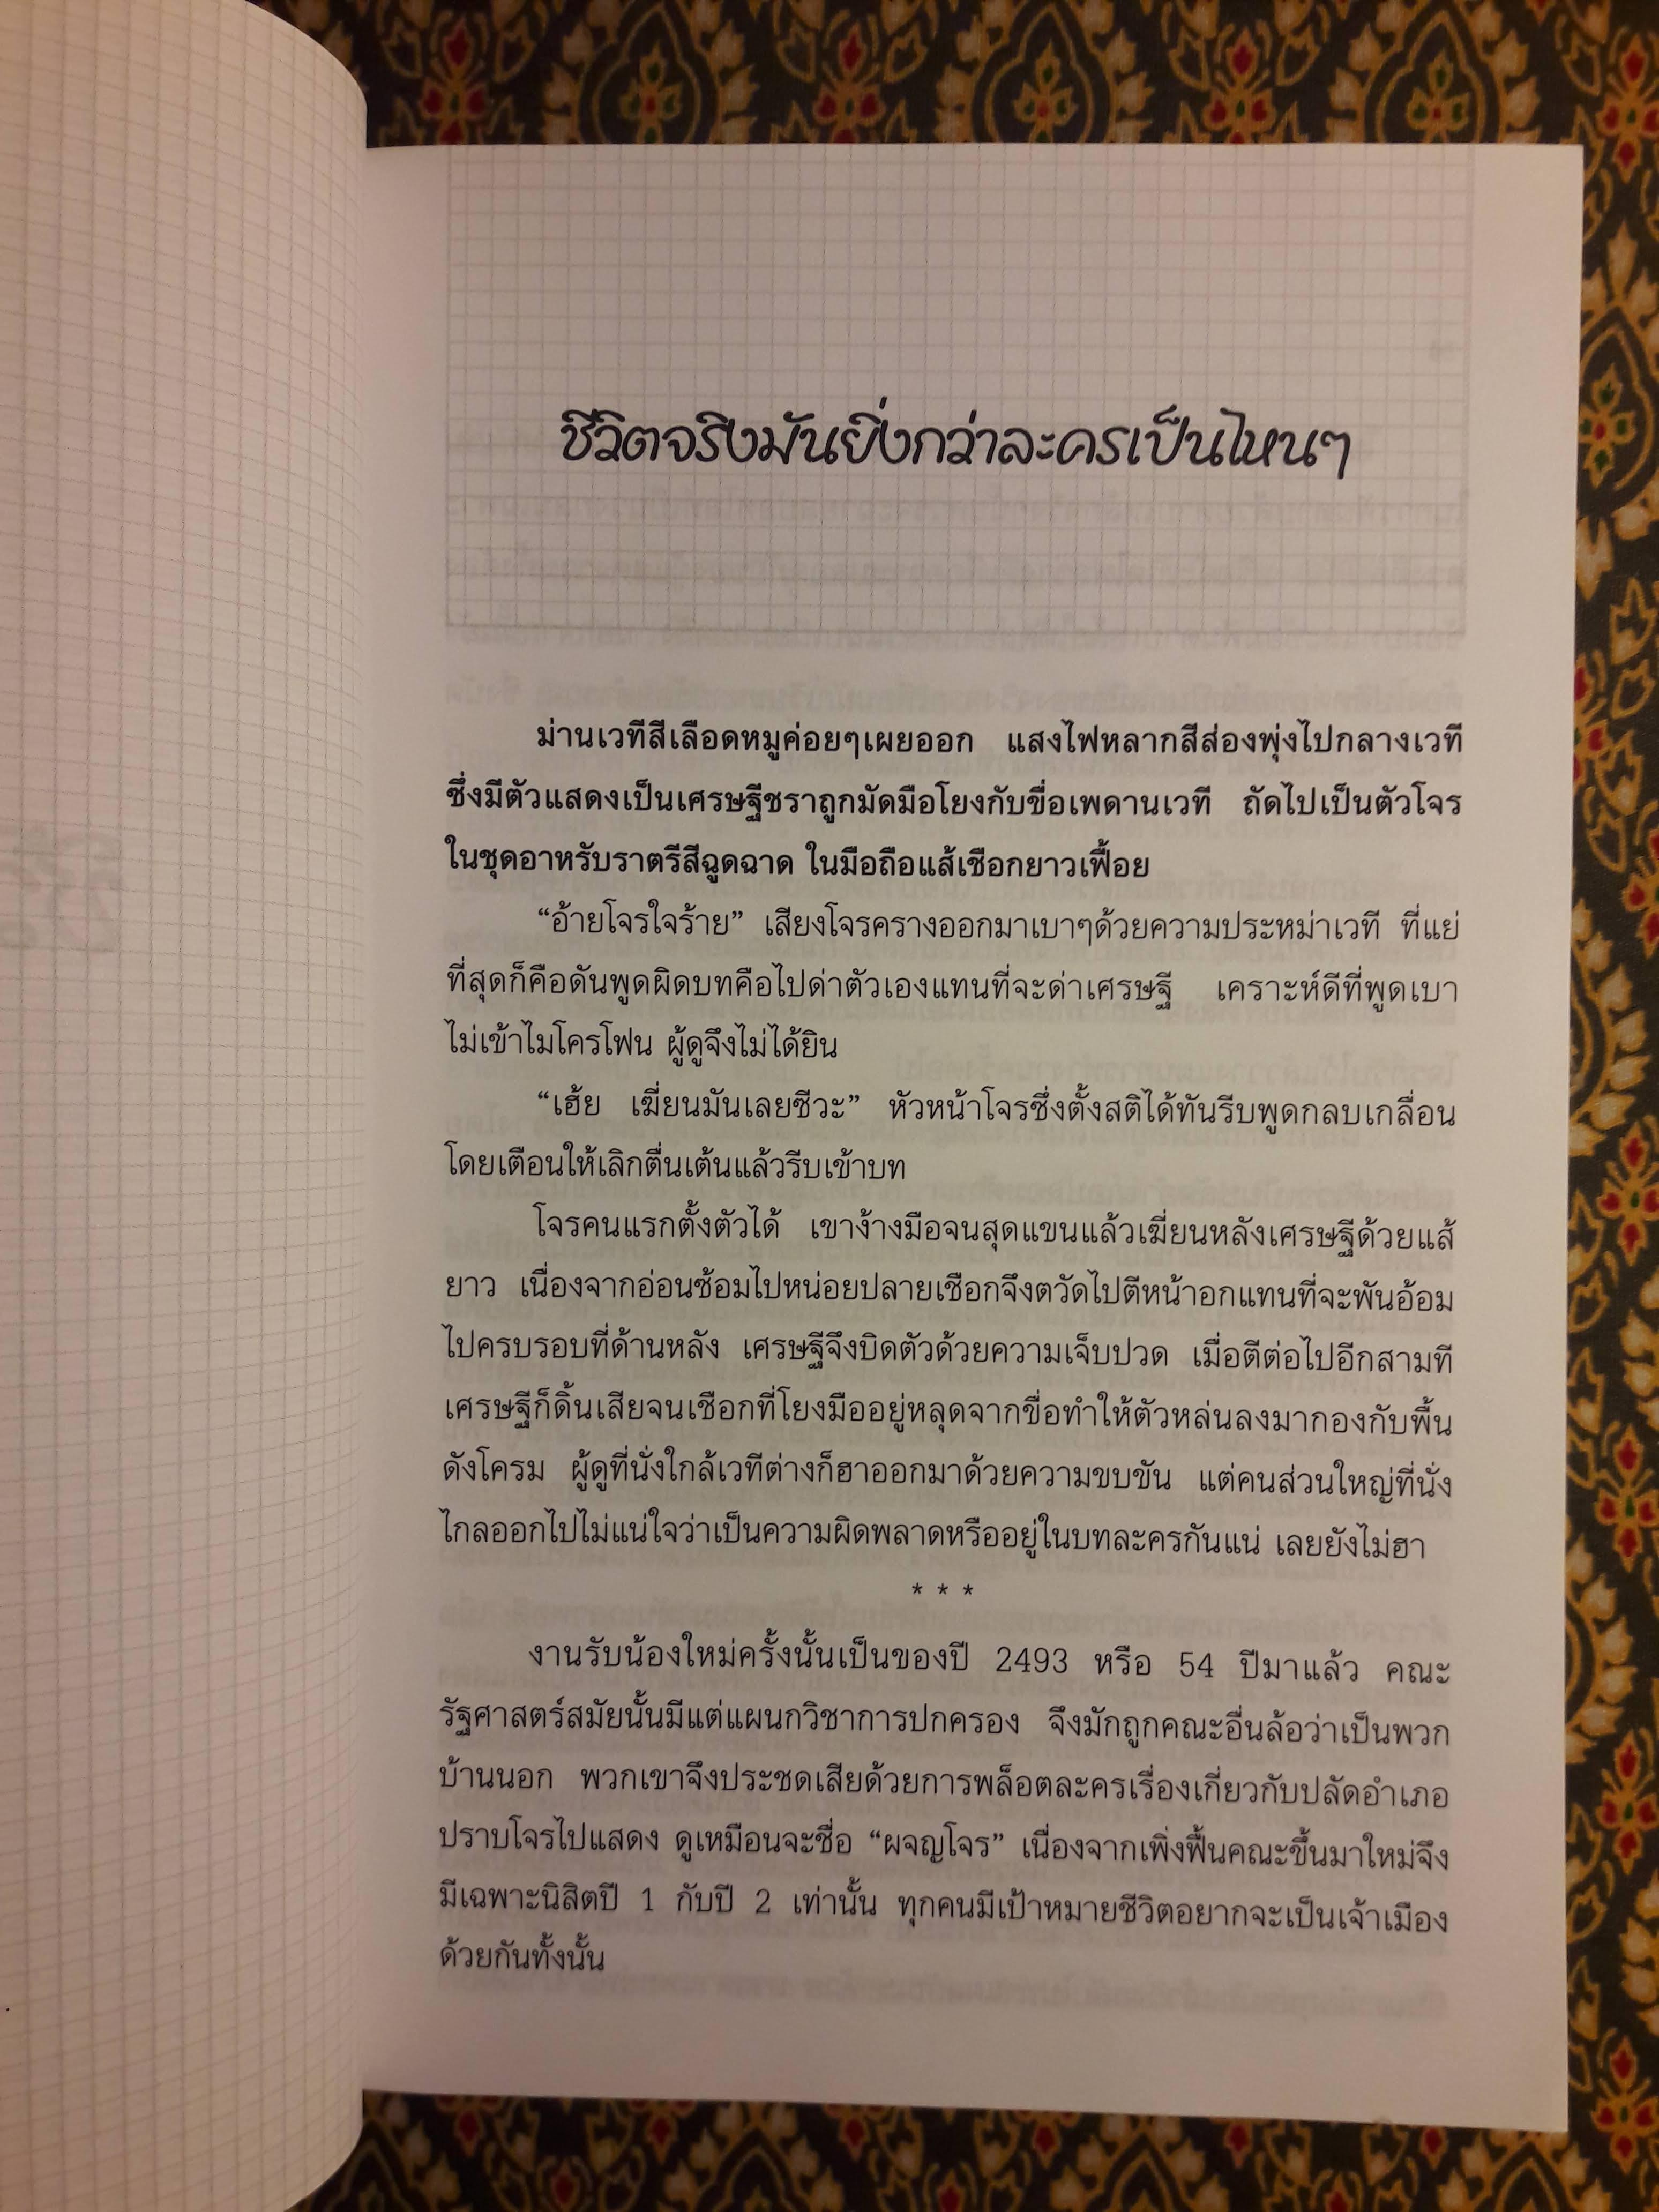 ชีวิตจริงมันยิ่งกว่าละครเป็นไหนๆ
ม่านเวทีสีเลือดหมูค่อยๆเผยออก แสงไฟหลากสีส่องพุ่งไปกลางเวที
ซึ่งมีตัวแสดงเป็นเศรษฐีชราถูกมัดมือโยงกับขื่อเพดานเวที ถัดไปเป็นตัวโจร
ในชุดอาหรับราตรีสีฉูดฉาด ในมือถือแส้เชือกยาวเฟื้อย
“อ้ายโจรใจร้าย” เสียงโจรครางออกมาเบาๆด้วยความประหม่าเวที ที่แย่
ที่สุดก็คือดันพูดผิดบทคือไปด่าตัวเองแทนที่จะด่าเศรษฐี เคราะห์ดีที่พูดเบา
ไม่เข้าไมโครโฟน ผู้ดูจึงไม่ได้ยิน
“เฮ้ย เฆี่ยนมันเลยซีวะ” หัวหน้าโจรซึ่งตั้งสติได้ทันรีบพูดกลบเกลื่อน
โดยเตือนให้เลิกตื่นเต้นแล้วรีบเข้าบท
โจรคนแรกตั้งตัวได้ เขาง้างมือจนสุดแขนแล้วเฆี่ยนหลังเศรษฐีด้วยแส้
ยาว เนื่องจากอ่อนซ้อมไปหน่อยปลายเชือกจึงตวัดไปตีหน้าอกแทนที่จะพันอ้อม
ไปครบรอบที่ด้านหลัง เศรษฐีจึงบิดตัวด้วยความเจ็บปวด เมื่อตีต่อไปอีกสามที
เศรษฐีก็ดิ้นเสียจนเชือกที่โยงมืออยู่หลุดจากขื่อทำให้ตัวหล่นลงมากองกับพื้น
ดังโครม ผู้ดูที่นั่งใกล้เวทีต่างก็ฮาออกมาด้วยความขบขัน แต่คนส่วนใหญ่ที่นั่ง
ไกลออกไปไม่แน่ใจว่าเป็นความผิดพลาดหรืออยู่ในบทละครกันแน่ เลยยังไม่ฮา
* * *
งานรับน้องใหม่ครั้งนั้นเป็นของปี 2493 หรือ 54 ปีมาแล้ว คณะ
รัฐศาสตร์สมัยนั้นมีแต่แผนกวิชาการปกครอง จึงมักถูกคณะอื่นล้อว่าเป็นพวก
บ้านนอก พวกเขาจึงประชดเสียด้วยการพล็อตละครเรื่องเกี่ยวกับปลัดอำเภอ
ปราบโจรไปแสดง ดูเหมือนจะชื่อ “ผจญโจร” เนื่องจากเพิ่งฟื้นคณะขึ้นมาใหม่จึง
มีเฉพาะนิสิตปี 1 กับปี 2 เท่านั้น ทุกคนมีเป้าหมายชีวิตอยากจะเป็นเจ้าเมือง
ด้วยกันทั้งนั้น